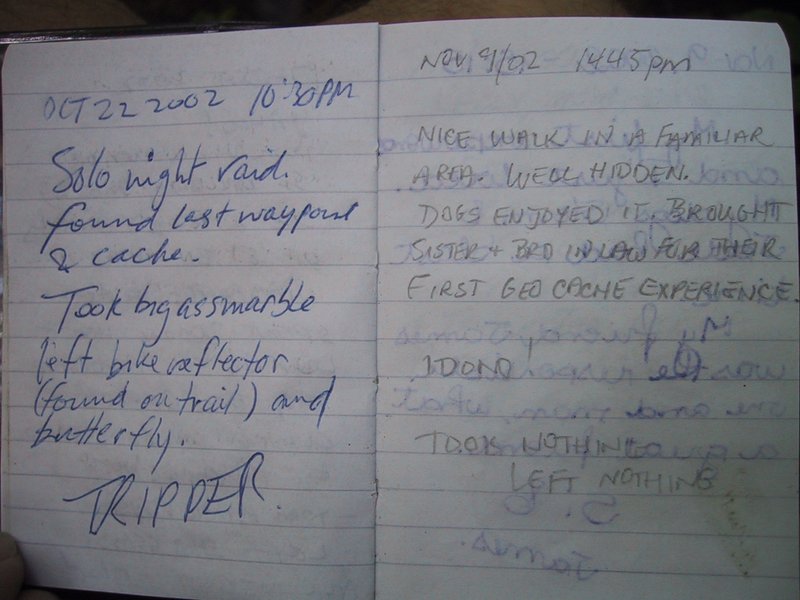 OCT 22 2002 10:30PM
Solo night raid.
found last waypoint
& cache.
Took big ass marble
left bike reflector
(found on trail) and
butterfly.
TRIPPER.
NOV 9/02 1445pm
NICE WALK IN A FAMILIAR
AREA. WELL HIDDEN.
DOGS ENJOYED IT. BROUGHT
SISTER + BRO IN LAW FOR THEIR
FIRST GEO CACHE EXPERIENCE.
TOOK NOTHING
LEFT NOTHING
James.